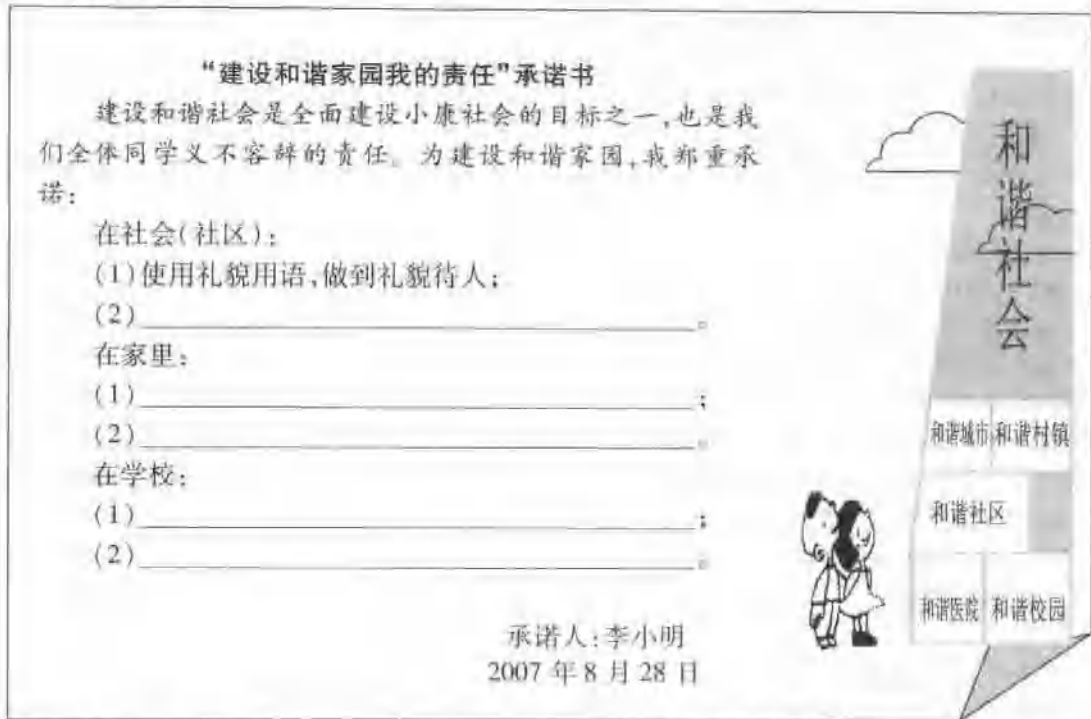 “建设和谐家园我的责任”承诺书
建设和谐社会是全面建设小康社会的目标之一,也是我
们全体同学义不容辞的责任。为建设和谐家园,我郑重承
诺:
在社会(社区):
(1)使用礼貌用语,做到礼貌待人;
(2)____________________。
在家里:
(1)____________________;
(2)____________________。
在学校:
(1)____________________;
(2)____________________。
承诺人:李小明
2007年8月28日
和谐社会
和谐城市 和谐村镇
和谐社区
和谐医院 和谐校园